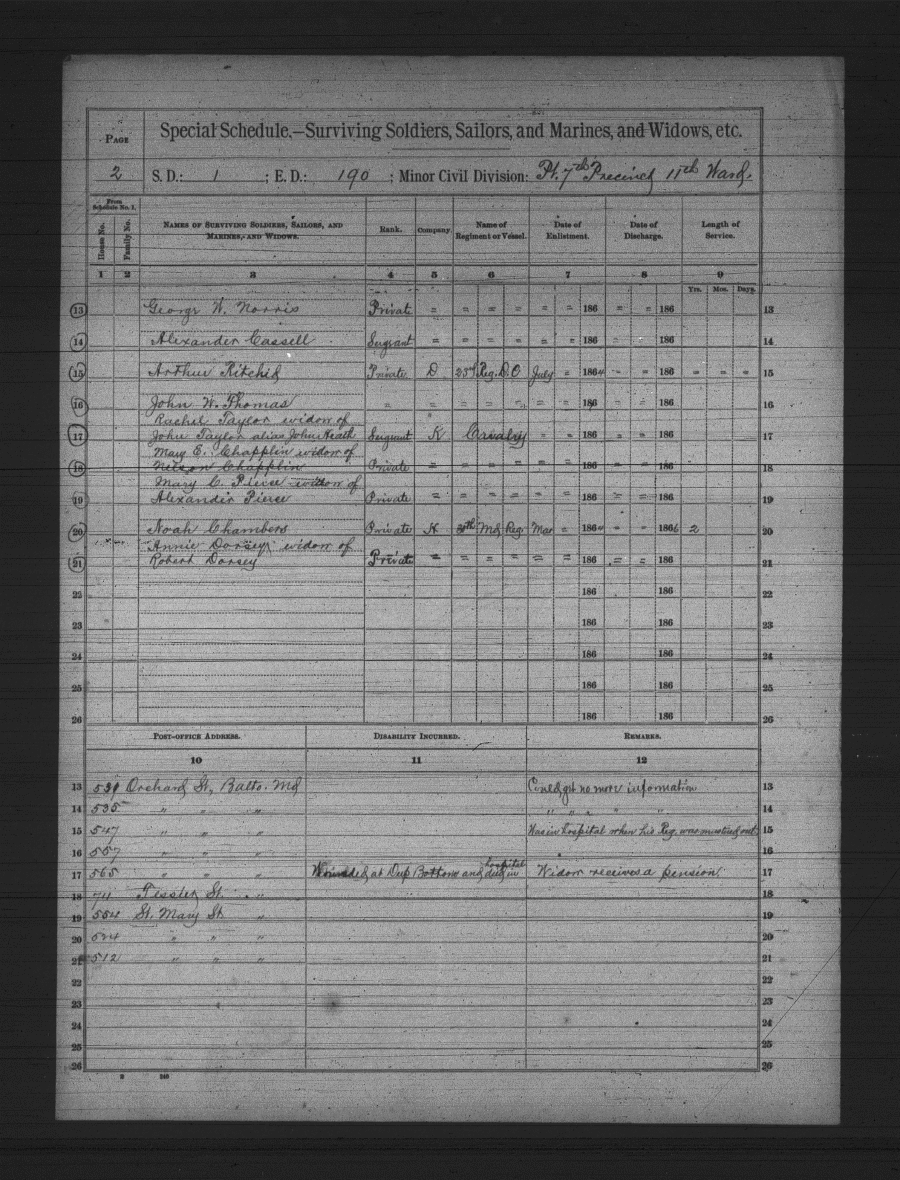 PAGE
2
Special Schedule.—Surviving Soldiers, Sailors, and Marines, and Widows, etc.
S. D.: 1 ; E. D.: 190 ; Minor Civil Division: Pt. 7th Precinct 11th Ward.
From Schedule No. 1.
House No.
Family No.
NAMES OF SURVIVING SOLDIERS, SAILORS, AND MARINES, AND WIDOWS.
Rank.
Company.
Name of Regiment or Vessel.
Date of Enlistment.
Date of Discharge.
Length of Service.
1 2 3 4 5 6 7 8 9
Yrs. Mos. Days.
13 George W. Norris Private = = = = = = = 186 = = 186 13
14 Alexander Cassell Sergeant = = = = = = = 186 = = 186 14
15 Arthur Ritchie Private D 23rd Reg. D.C July = 1864 = = 186 = = = 15
16 John W. Thomas = = = = = = = = 186 = = 186 16
Rachel Taylor widow of
17 John Taylor alias John Heath Sergeant K Cavalry = = 186 = = 186 17
Mary E. Chapplin widow of
18 Nelson Chapplin Private = = = = = = = 186 = = 186 18
Mary C. Pierce widow of
19 Alexander Pierce Private = = = = = = = 186 = = 186 19
20 Noah Chambers Private H Md Reg. Mar = 1864 = = 1866 2 20
Annie Dorsey widow of
21 Robert Dorsey Private = = = = = = = 186 = = 186 21
22 186 186 22
23 186 186 23
24 186 186 24
25 186 186 25
26 186 186 26
POST-OFFICE ADDRESS. DISABILITY INCURRED. REMARKS.
10 11 12
13 531 Orchard St, Balto. Md Could get no more information 13
14 535 " " " " " " " 14
15 547 " " " Was in hospital when his Reg. was mustered out. 15
16 557 " " " 16
17 565 " " " Wounded at Deep Bottom and died in hospital Widow receives a pension. 17
18 711 Tessier St. " 18
19 554 St. Mary St. " 19
20 524 " " " 20
21 512 " " " 21
22 22
23 23
24 24
25 25
26 26